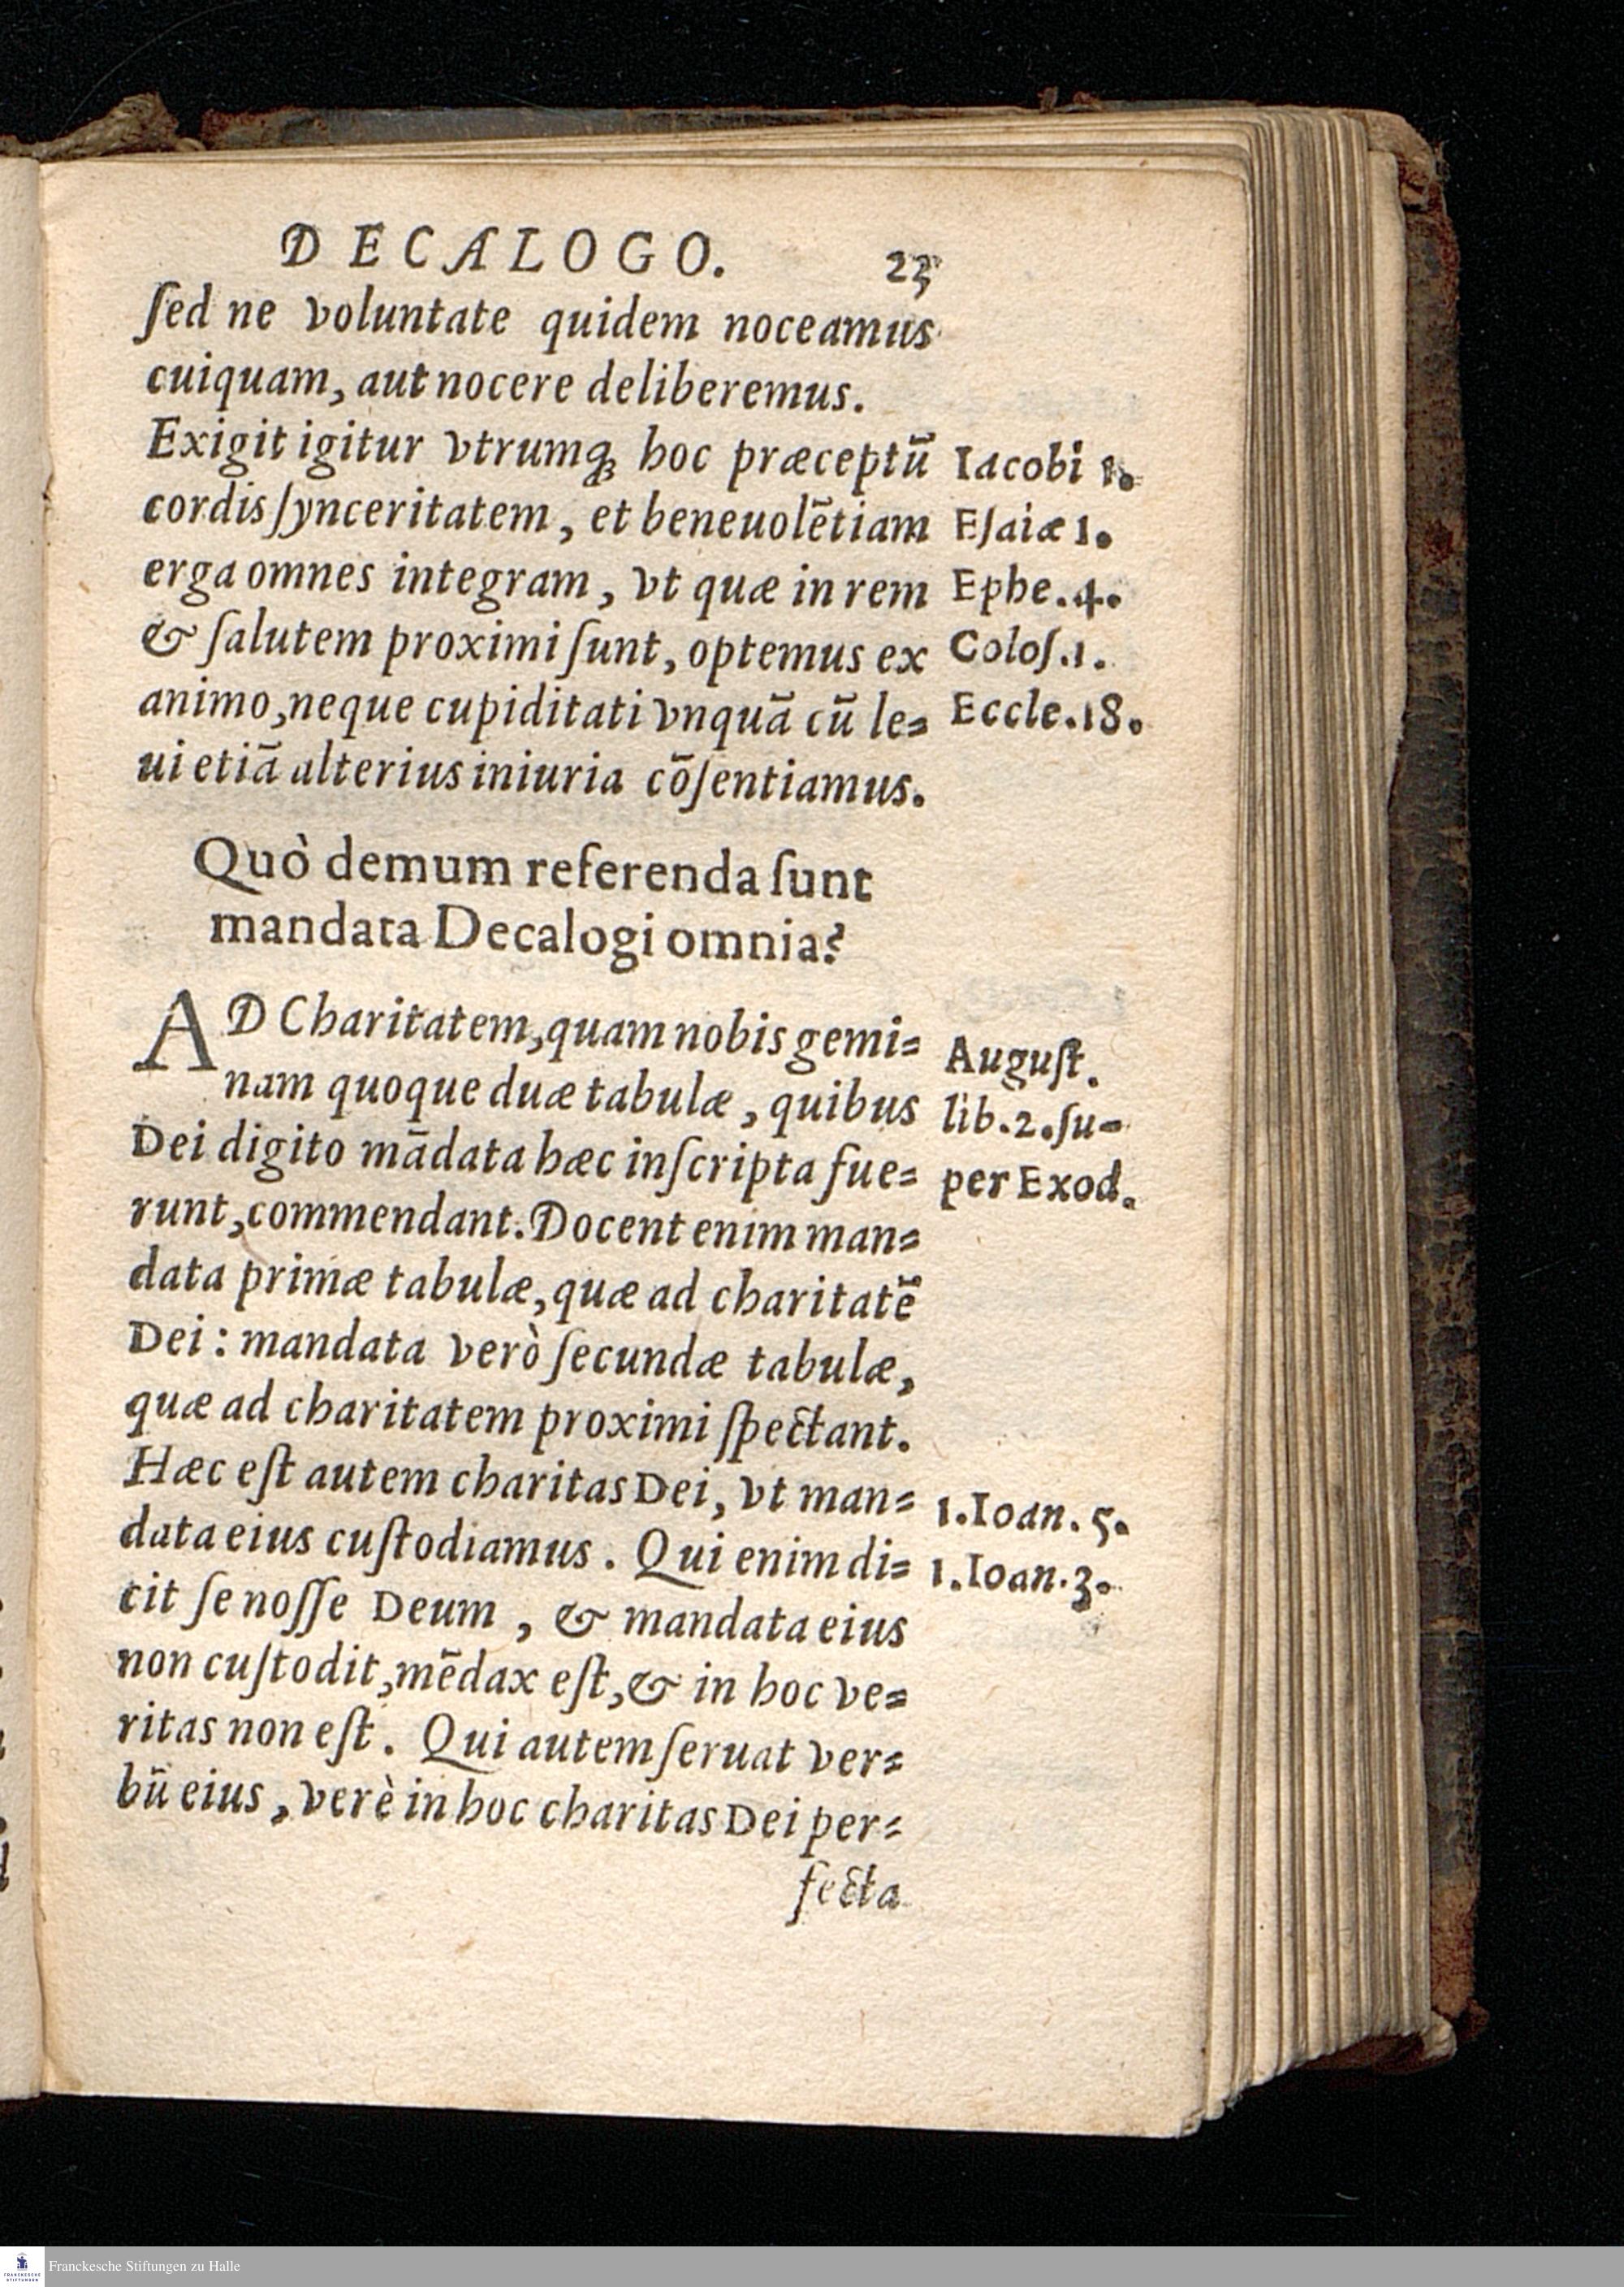 DECALOGO. 23
ſed ne voluntate quidem noceamus
cuiquam, aut nocere deliberemus.
Exigit igitur vtrumq́ꝫ hoc præceptū
cordis ſynceritatem, et beneuolētiam
erga omnes integram, vt quæ in rem
& ſalutem proximi ſunt, optemus ex
animo, neque cupiditati vnquā cū le=
ui etiā alterius iniuria cōſentiamus.
Iacobi 1.
Eſaiæ 1.
Ephe. 4.
Coloſ. 1.
Eccle. 18.
Quò demum referenda ſunt
mandata Decalogi omnia?
AD Charitatem, quam nobis gemi=
nam quoque duæ tabulæ, quibus
Dei digito mādata hæc inſcripta fue=
runt, commendant. Docent enim man=
data primæ tabulæ, quæ ad charitatē
Dei: mandata verò ſecundæ tabulæ,
quæ ad charitatem proximi ſpectant.
Hæc eſt autem charitas Dei, vt man=
data eius cuſtodiamus. Qui enim di=
cit ſe noſſe Deum, & mandata eius
non cuſtodit, mēdax eſt, & in hoc ve=
ritas non eſt. Qui autem ſeruat ver=
bū eius, verè in hoc charitas Dei per=
fecta
Auguſt.
lib. 2. ſu-
per Exod.
1. Ioan. 5.
1. Ioan. 3.
FRANCKESCHE
STIFTUNGEN
Franckesche Stiftungen zu Halle